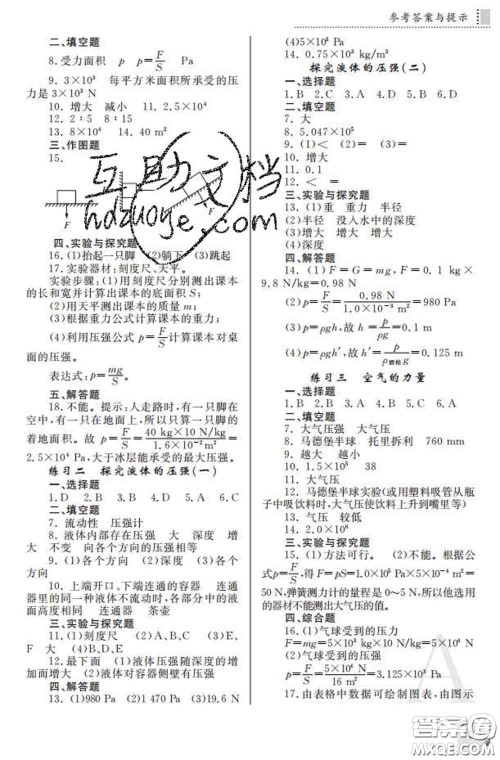 参考答案与提示
二、填空题
8. 受力面积 p p=F/S Pa
9. 3×10³ 每平方米面积所承受的压
力是3×10³ N
10. 增大 减小 11. 2.5×10⁴
12. 2:5 8:15
13. 8×10⁴ 14. 40 m²
三、作图题
15.
F
F
四、实验与探究题
16. (1)抬起一只脚 (2)躺下 (3)跳起
17. 实验器材:刻度尺、天平。
实验步骤:(1)用刻度尺分别测出课本
的长和宽并计算出课本的底面积S;
(2)用天平测出课本的质量m;
(3)根据重力公式计算课本的重力;
(4)利用压强公式计算课本对桌
面的压强。
表达式:p=mg/S。
五、解答题
18. 不能。提示:人走路时,有一只脚在
空中,有一只在地面上,所以只算一只脚的
着地面积。故 p=F/S=40 kg×10 N/kg/1.6×10⁻² m²=
2.5×10⁴ Pa,大于冰层能承受的最大压强。
练习二 探究液体的压强(一)
一、选择题
1. D 2. B 3. D 4. A 5. A 6. C
二、填空题
7. 流动性 压强计
8. 液体内部存在压强 大 深度 增
大 不变 向各个方向的压强相等
9. (1)各个方向 (2)深度 (3)各个
方向
10. 上端开口、下端连通的容器 连通
器里的同一种液体不流动时,各部分中的液
面高度相同 连通器 茶壶
三、实验与探究题
11. (1)刻度尺 (2)A (3)D、E
大 (4)B、D、E
12. 最下面 (1)液体压强随深度的增
加而增大 (2)液体对容器侧壁有压强
四、解答题
13. (1)980 Pa (2)1 470 Pa (3)19.6 N
(4)5×10³ Pa
14. 0.75×10³ kg/m³
探究液体的压强(二)
一、选择题
1. B 2. C 3. A 4. D 5. B 6. D
二、填空题
7. 大
8. 5.047×10⁵
9. (1)< (2)= (3)=
10. 增大
11. 0.1
12. < =
三、实验与探究题
13. (1)重 重力 半径
(2)半径 没入水中的深度
(3)增大
(4)深度
四、解答题
14. (1)F=G=mg,F=0.1 kg×
9.8 N/kg=0.98 N
(2)p=F/S=0.98 N/1.0×10⁻³ m²=980 Pa
(3)p=ρgh,故h=p/ρg=0.1 m
(4)p=ρgh′,故h′=p/ρ酒精g=0.125 m
练习三 空气的力量
一、选择题
1. D 2. C 3. D 4. B 5. A 6. C
二、填空题
7. 大气压强 大气压
8. 马德堡半球 托里拆利 760 mm
9. 越大 越小
10. 1.5×10⁵ 38
11. 大气压
12. 马德堡半球实验(或用塑料吸管从瓶
子中吸饮料时,大气压使饮料上升到嘴里等)
13. 气压 较低
14. 2.0×10⁶
三、实验与探究题
15. (1)方法可行。 (2)不能。根据公
式p=F/S得,F=pS=1.0×10⁵ Pa×5×10⁻⁴ m²=
50 N,弹簧测力计的量程是0~5 N,所以他选用
的器材不能测出大气压的值。
四、综合题
16. (1)气球受到的压力
F=mg=5×10⁴ N
(2)气球受到的压强
p=F/S=5×10⁴ N/16 m²=3.125×10³ Pa
17. 由表格中数据可绘制图表,由图示
互助文档
hdzuoye.com
A
答案圈